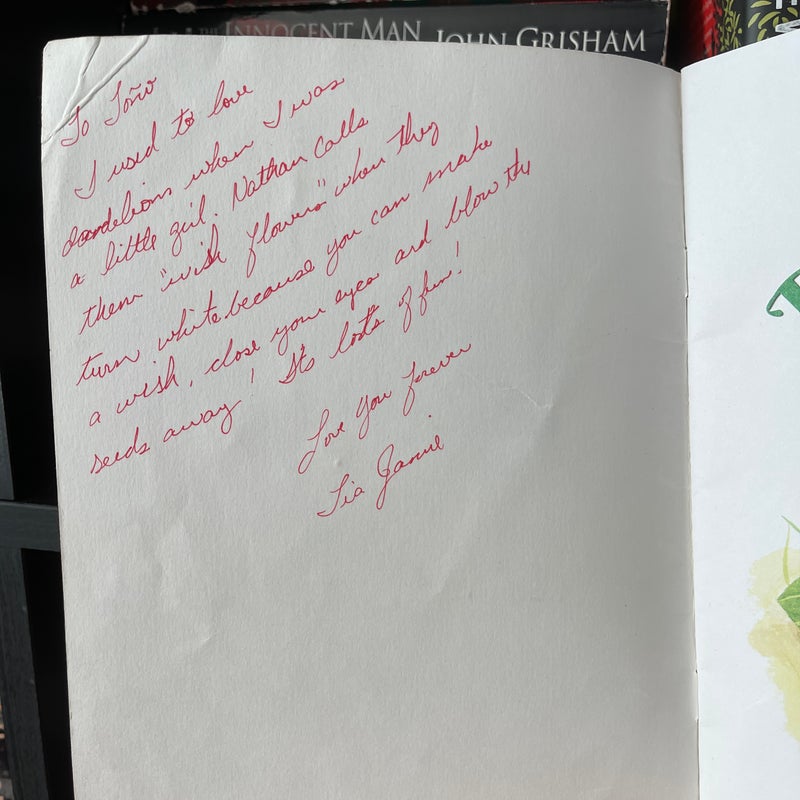 THE INNOCENT MAN JOHN GRISHAM
To Toño
I used to love
dandelions when I was
a little girl. Nathan calls
them "wish flowers" when they
turn white because you can make
a wish, close your eyes and blow the
seeds away! It's lots of fun!
Love You forever
Tia Jamie